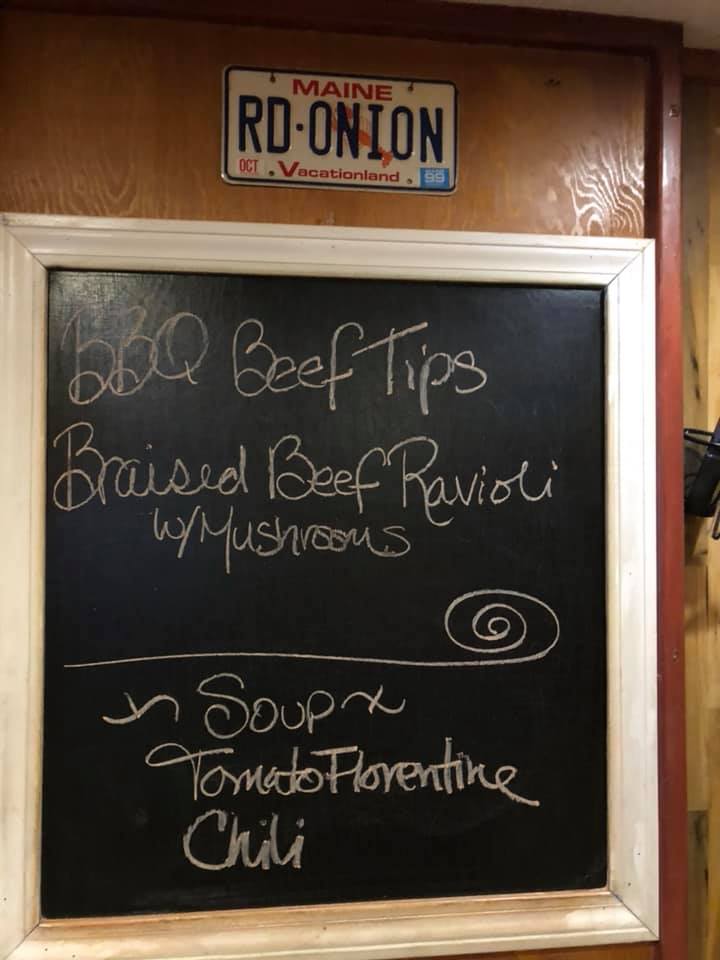 MAINE
RD·ONION
OCT Vacationland 99
BBQ Beef Tips
Braised Beef Ravioli
w/Mushrooms
~ Soup ~
Tomato Florentine
Chili